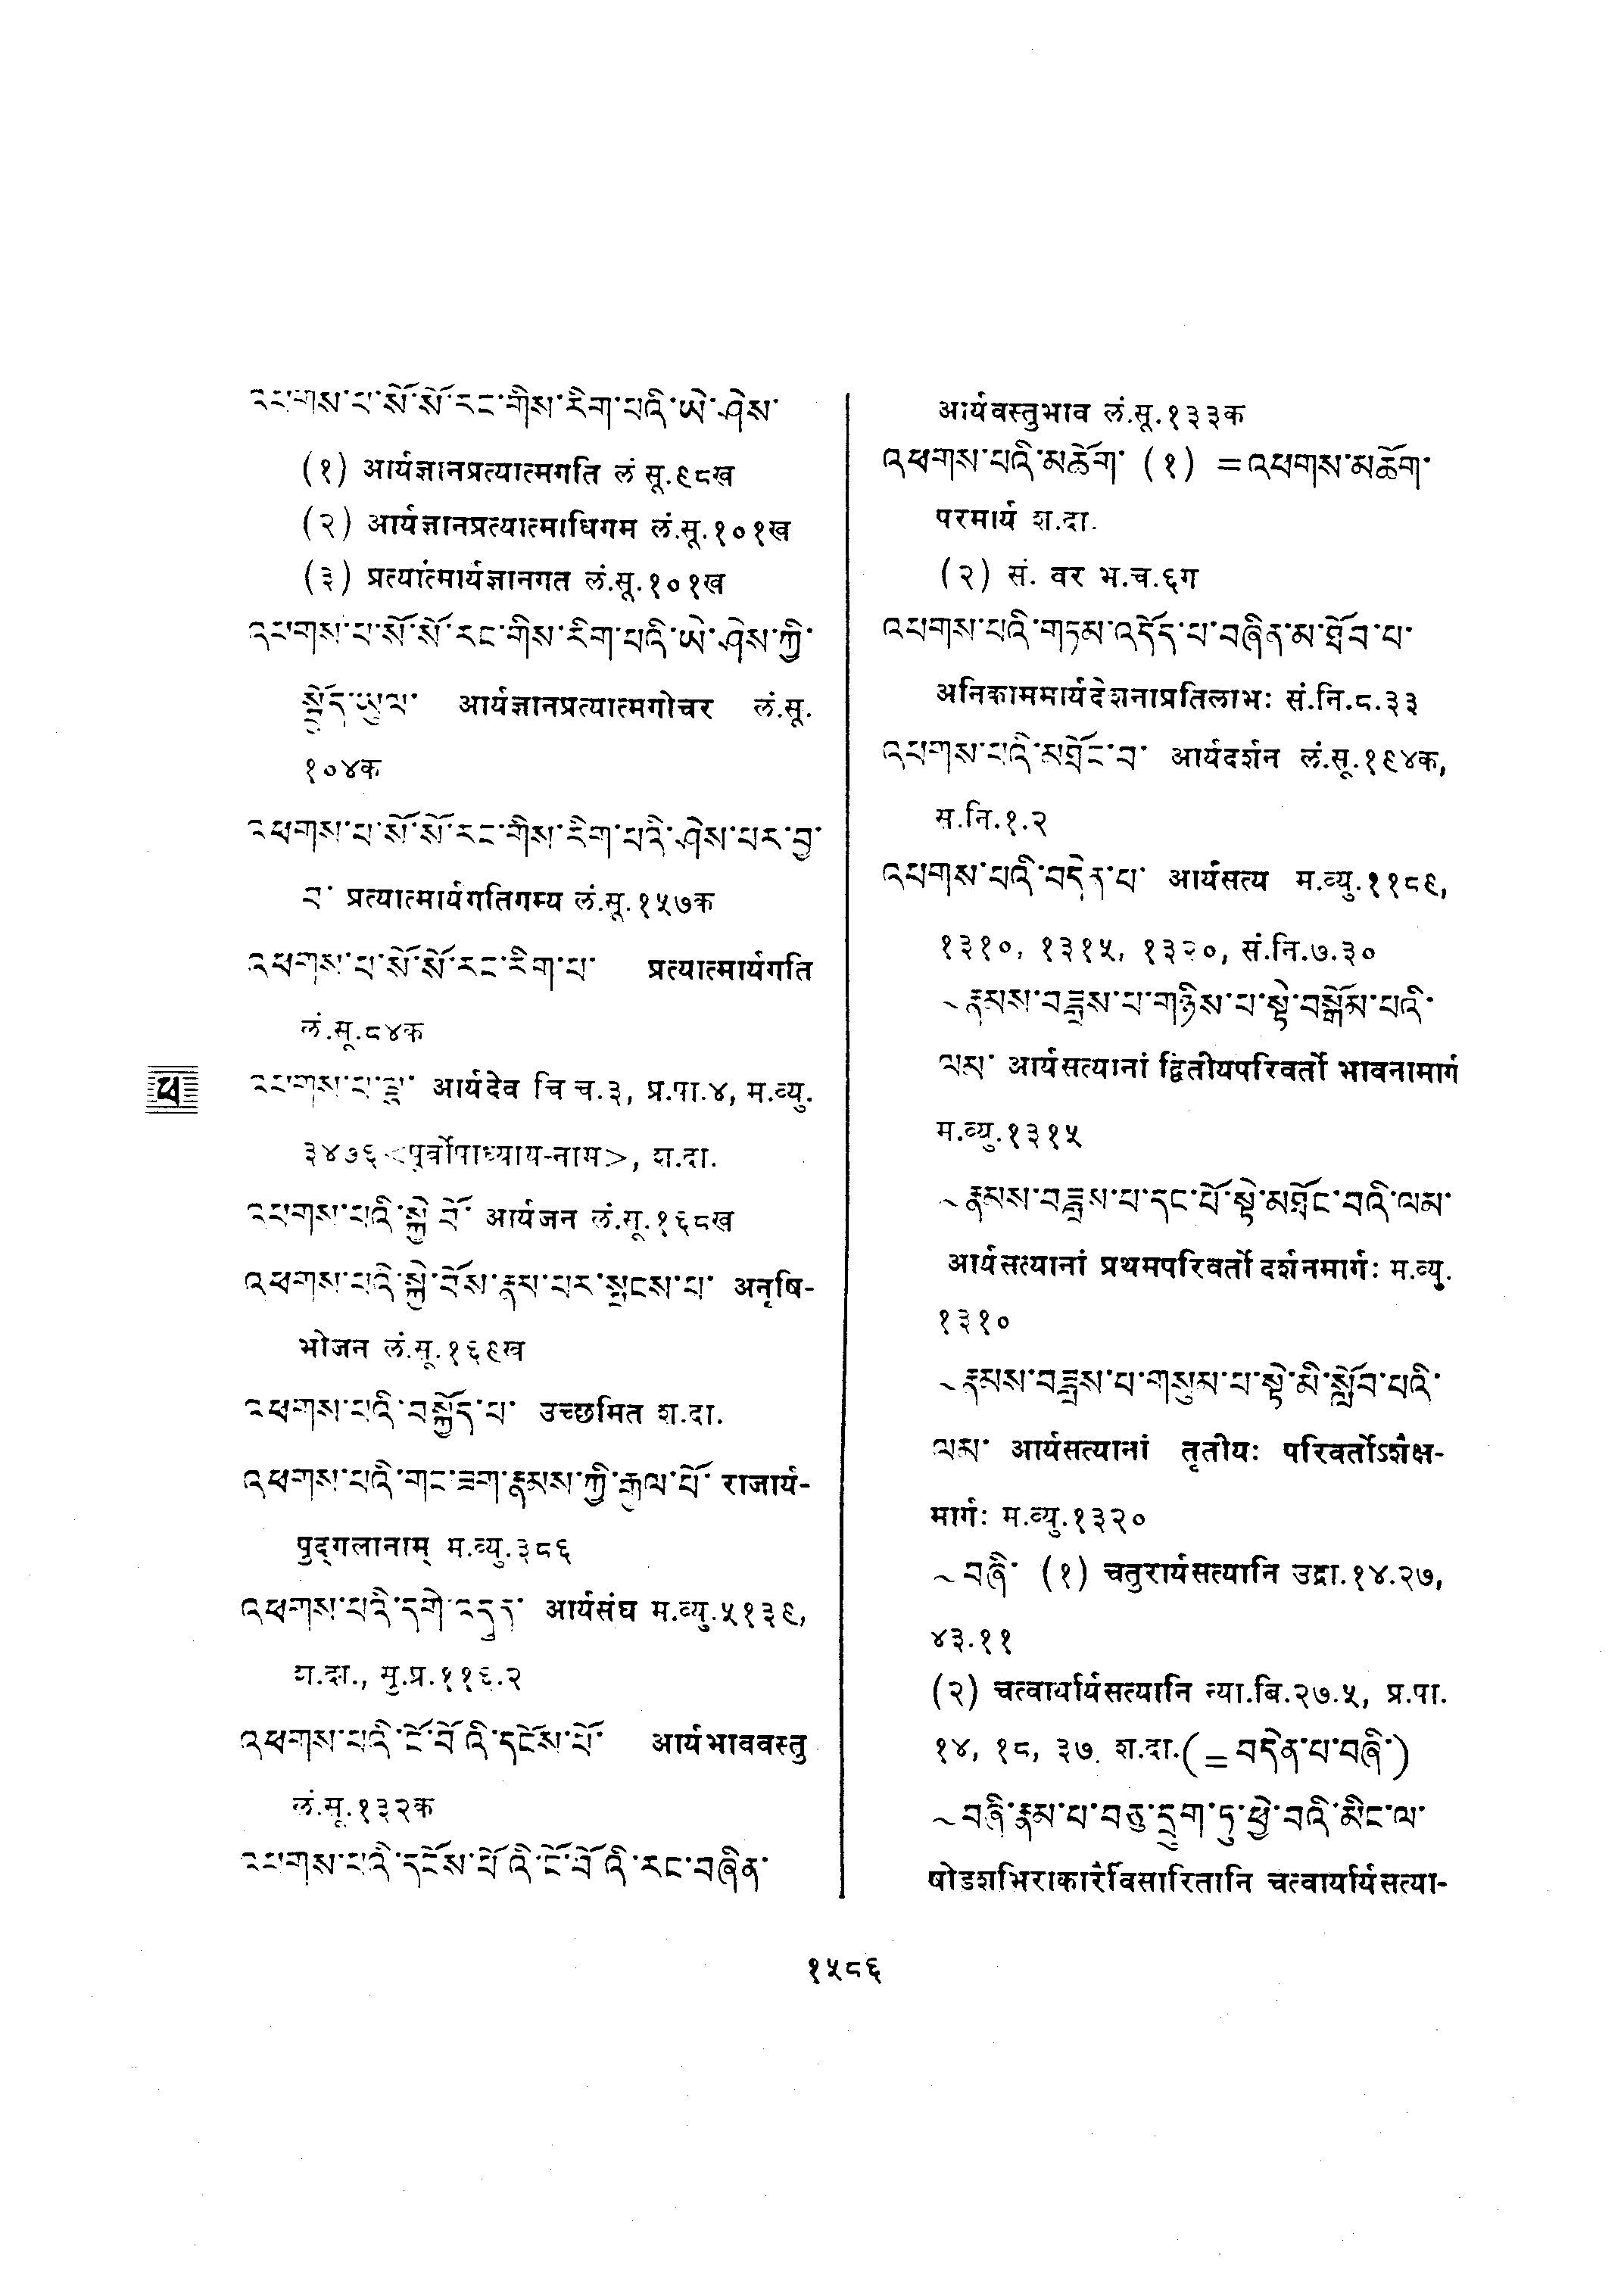 འཕགས་པ་སོ་སོ་རང་གིས་རིག་པའི་ཡེ་ཤེས་
(१) आर्यज्ञानप्रत्यात्मगति लं सू.९८ख
(२) आर्यज्ञानप्रत्यात्माधिगम लं.सू.१०१ख
(३) प्रत्यात्मार्यज्ञानगत लं.सू.१०१ख
འཕགས་པ་སོ་སོ་རང་གིས་རིག་པའི་ཡེ་ཤེས་ཀྱི་
སྤྱོད་ཡུལ་ आर्यज्ञानप्रत्यात्मगोचर लं.सू.
१०४क
འཕགས་པ་སོ་སོ་རང་གིས་རིག་པའི་ཤེས་པར་བྱ་
བ་ प्रत्यात्मार्यगतिगम्य लं.सू.१५७क
འཕགས་པ་སོ་སོ་རང་རིག་པ་ प्रत्यात्मार्यगति
लं.सू.८४क
འཕགས་པ་ལྷ་ आर्यदेव चि च.३, प्र.पा.४, म.व्यु.
३४७६ <पूर्वोपाध्याय-नाम>, श.दा.
འཕགས་པའི་སྐྱེ་བོ་ आर्यजन लं.सू.१६८ख
འཕགས་པའི་སྐྱེ་བོས་རྣམ་པར་སྤངས་པ་ अनृषि-
भोजन लं.सू.१६९ख
འཕགས་པའི་བསྐྱོད་པ་ उच्छमित श.दा.
འཕགས་པའི་གང་ཟག་རྣམས་ཀྱི་རྒྱལ་པོ་ राजार्य-
पुद्गलानाम् म.व्यु.३८६
འཕགས་པའི་དགེ་འདུན་ आर्यसंघ म.व्यु.५१३९,
श.दा., मृ.प्र.११६.२
འཕགས་པའི་ངོ་བོའི་དངོས་པོ་ आर्यभाववस्तु
लं.सू.१३२क
འཕགས་པའི་དངོས་པོའི་ངོ་བོའི་རང་བཞིན་
པ
आर्यवस्तुभाव लं.सू.१३३क
འཕགས་པའི་མཆོག་ (१) =འཕགས་མཆོག་
परमार्य श.दा.
(२) सं. वर भ.च.६ग
འཕགས་པའི་གཏམ་འདོད་པ་བཞིན་མ་ཐོབ་པ་
अनिकाममार्यदेशनाप्रतिलाभः सं.नि.८.३३
འཕགས་པའི་མཐོང་བ་ आर्यदर्शन लं.सू.१९४क,
म.नि.१.२
འཕགས་པའི་བདེན་པ་ आर्यसत्य म.व्यु.११८९,
१३१०, १३१५, १३२०, सं.नि.७.३०
~རྣམས་བཟླས་པ་གཉིས་པ་སྟེ་བསྒོམ་པའི་
ལམ་ आर्यसत्यानां द्वितीयपरिवर्तो भावनामार्ग
म.व्यु.१३१५
~རྣམས་བཟླས་པ་དང་པོ་སྟེ་མཐོང་བའི་ལམ་
आर्यसत्यानां प्रथमपरिवर्तो दर्शनमार्गः म.व्यु.
१३१०
~རྣམས་བཟླས་པ་གསུམ་པ་སྟེ་མི་སློབ་པའི་
ལམ་ आर्यसत्यानां तृतीयः परिवर्तोऽशैक्ष-
मार्गः म.व्यु.१३२०
~བཞི་ (१) चतुरार्यसत्यानि उद्रा.१४.२७,
४३.११
(२) चत्वार्यार्यसत्यानि न्या.बि.२७.५, प्र.पा.
१४, १८, ३७. श.दा.(=བདེན་པ་བཞི་)
~བཞི་རྣམ་པ་བཅུ་དྲུག་ཏུ་ཕྱེ་བའི་མིང་ལ་
षोडशभिराकारैर्विसारितानि चत्वार्यार्यसत्या-
१५८६